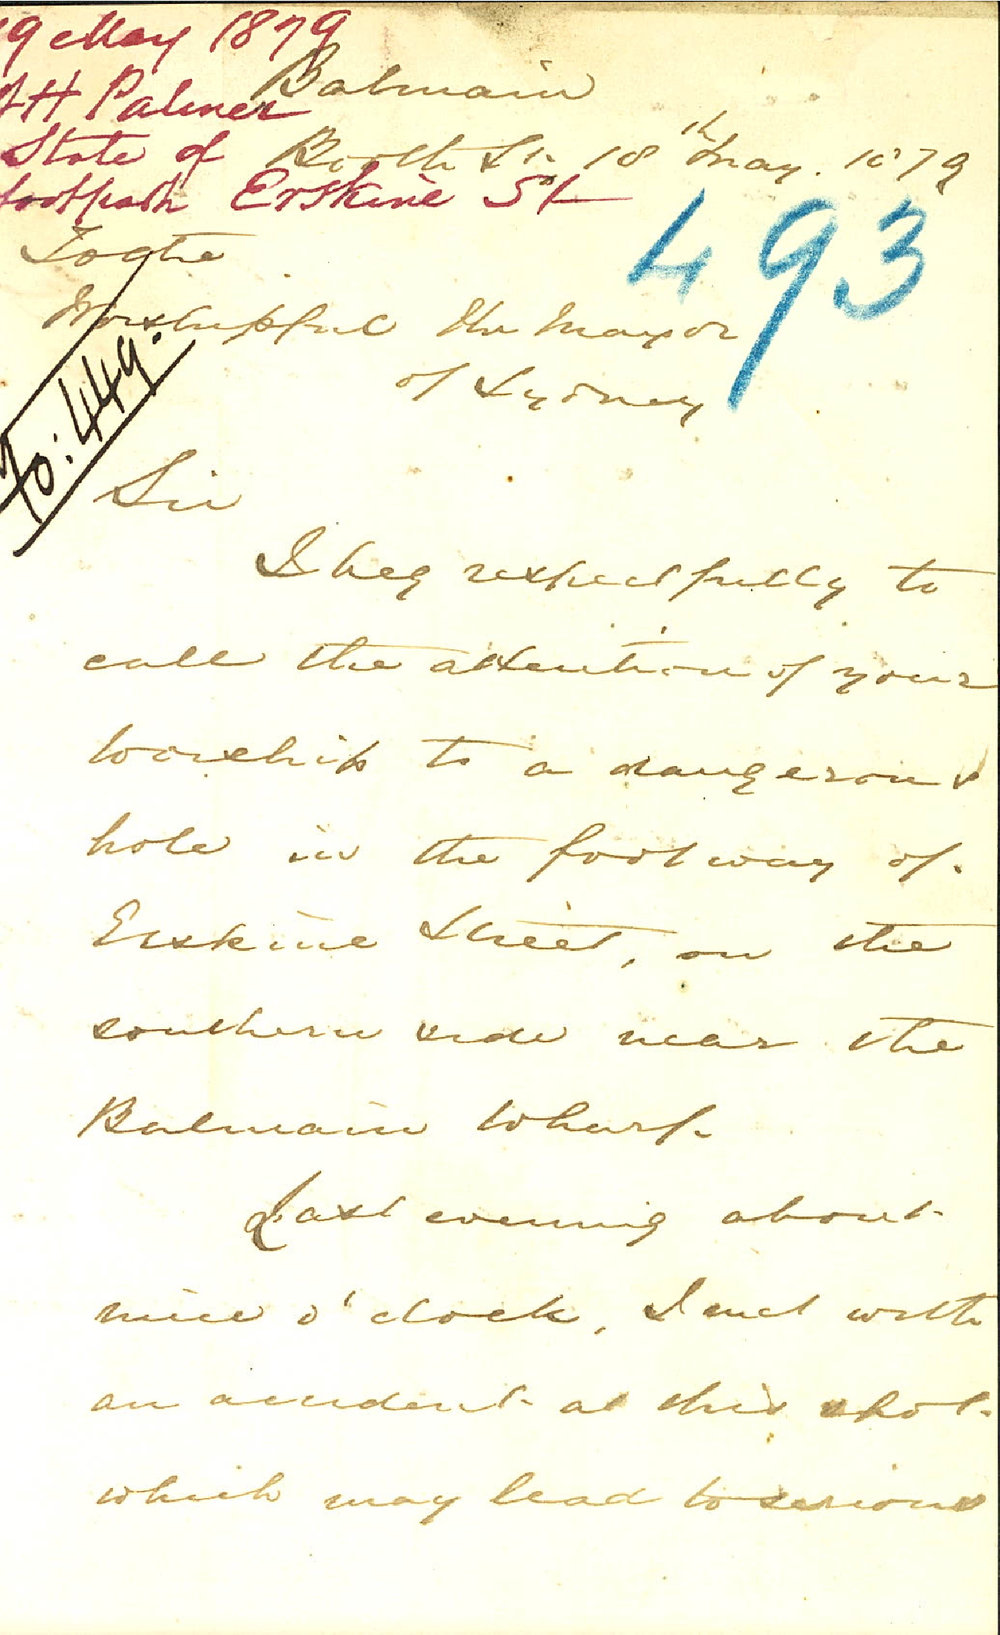 19 May 1879
AH Palmer
State of
footpath Erskine St
493
Fo: 449.
Balmain
Booth St. 18th May. 1879
To the
Worshipful the Mayor
of Sydney
Sir
I beg respectfully to
call the attention of your
worship to a dangerous
hole in the footway of.
Erskine Street, on the
southern side near the
Balmain Wharf.
Last evening about
nine o'clock, I met with
an accident at this spot
which may lead to serious